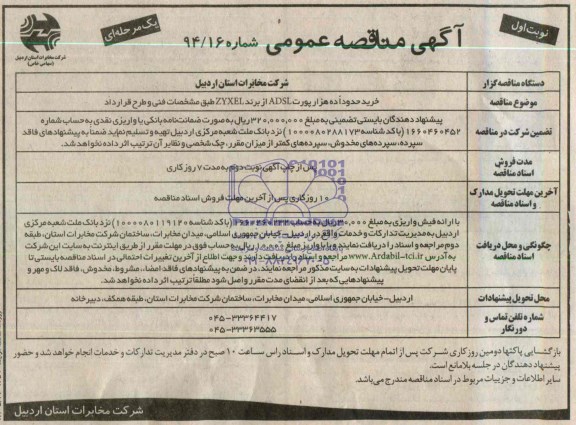 نوبت اول
آگهی مناقصه عمومی شماره ۹۴/۱۶
یک مرحله‌ای
شرکت مخابرات استان اردبیل
(سهامی خاص)
دستگاه مناقصه گزار
شرکت مخابرات استان اردبیل
موضوع مناقصه
خرید حدوداً ده هزار پورت ADSL از برند ZYXEL طبق مشخصات فنی و طرح قرارداد
تضمین شرکت در مناقصه
پیشنهاد دهندگان بایستی تضمینی به مبلغ ۳۲۰,۰۰۰,۰۰۰ ریال به صورت ضمانت‌نامه بانکی یا واریزی نقدی به حساب شماره
۱۶۶۰۴۶۰۴۵۲ (با کد شناسه ۱۰۰۰۰۰۸۰۲۸۸۱۷۳) نزد بانک ملت شعبه مرکزی اردبیل تهیه و تسلیم نماید ضمناً به پیشنهادهای فاقد
سپرده، سپرده‌های مخدوش، سپرده‌های کمتر از میزان مقرر، چک شخصی و نظایر آن ترتیب اثر داده نخواهد شد.
مدت فروش
اسناد مناقصه
پس از چاپ آگهی نوبت دوم به مدت ۷ روز کاری
آخرین مهلت تحویل مدارک
و اسناد مناقصه
۱۰ روز کاری پس از آخرین مهلت فروش اسناد مناقصه
چگونگی و محل دریافت
اسناد مناقصه
با ارائه فیش واریزی به مبلغ ریال به حساب (با کد شناسه ۱۰۰۰۰۰۸۰۱۱۹۱۲۰) نزد بانک ملت شعبه مرکزی
اردبیل به مدیریت تدارکات و خدمات واقع در اردبیل - خیابان جمهوری اسلامی، میدان مخابرات، ساختمان شرکت مخابرات استان، طبقه
دوم مراجعه و اسناد را دریافت نمایند و یا با واریز مبلغ ریال به حساب فوق در مهلت مقرر از طریق اینترنت به سایت این شرکت
به آدرس www.Ardabil-tci.ir مراجعه و اسناد را دریافت دارند و جهت اطلاع از آخرین تغییرات احتمالی در اسناد مناقصه بایستی تا
پایان مهلت تحویل پیشنهادات به سایت مذکور مراجعه نمایند. در ضمن به پیشنهادهای فاقد امضا، مشروط، مخدوش، فاقد لاک و مهر و
پیشنهادهایی که بعد از انقضای مدت مقرر واصل شود مطلقاً ترتیب اثر داده نخواهد شد.
محل تحویل پیشنهادات
اردبیل - خیابان جمهوری اسلامی، میدان مخابرات، ساختمان شرکت مخابرات استان، طبقه همکف، دبیرخانه
شماره تلفن تماس و
دورنگار
۰۴۵-۳۳۳۶۴۴۱۷
۰۴۵-۳۳۳۶۳۵۵۵
بازگشایی پاکتها دومین روز کاری شرکت پس از اتمام مهلت تحویل مدارک و اسناد راس ساعت ۱۰ صبح در دفتر مدیریت تدارکات و خدمات انجام خواهد شد و حضور
پیشنهاد دهندگان در جلسه بلامانع است.
سایر اطلاعات و جزییات مربوط در اسناد مناقصه مندرج می‌باشد.
شرکت مخابرات استان اردبیل